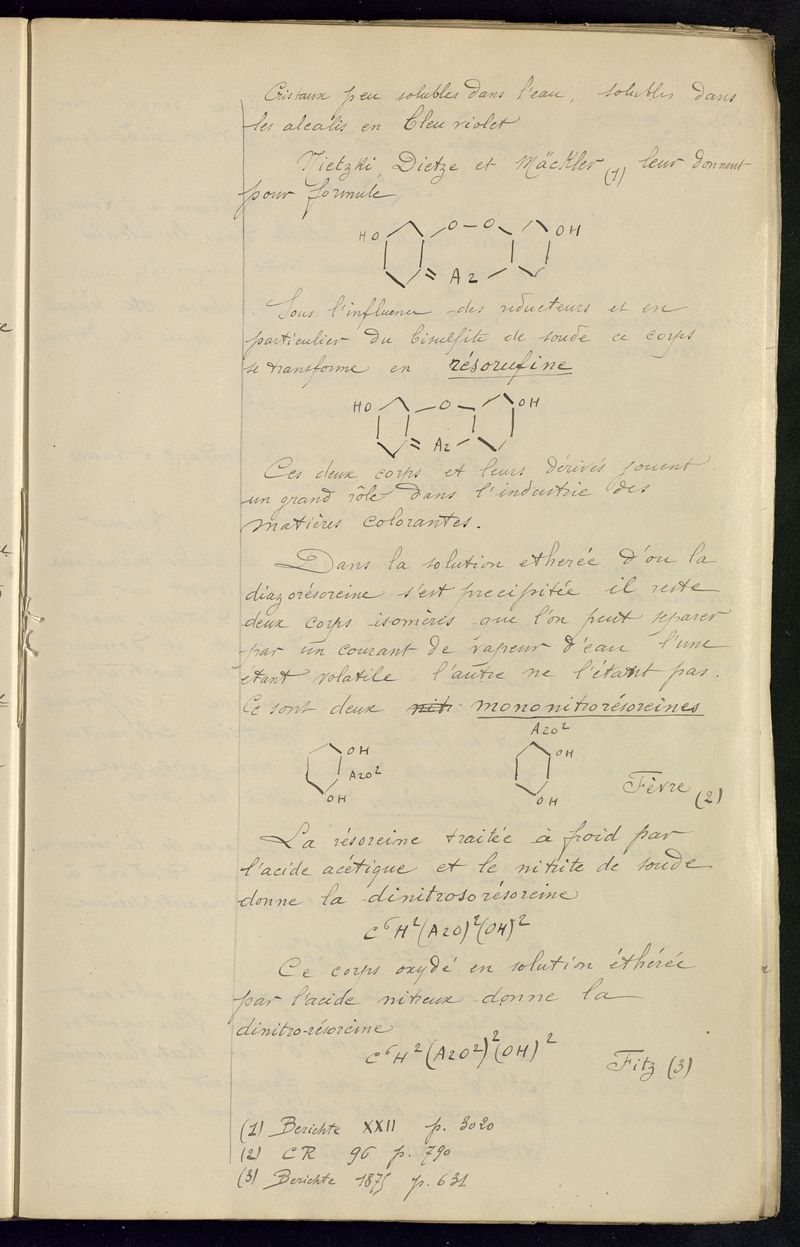 Cristaux peu solubles dans l'eau, solubles dans
les alcalis en bleu violet
Nietzki, Dietze et Mäckler (1) leur donnent
pour formule
HO O - O OH
= Az
Sous l'influence des réducteurs et en
particulier du bisulfite de soude ce corps
se transforme en résorufine
HO O OH
= Az
Ces deux corps et leurs dérivés jouent
un grand rôle dans l'industrie des
matières colorantes.
Dans la solution etherée d'ou la
diazorésorcine s'est precipitée il reste
deux corps isomères que l'on peut separer
par un courant de vapeur d'eau l'une
etant volatile l'autre ne l'étant pas.
Ce sont deux nitr mononitrorésorcines
AzO²
OH OH
AzO²
OH OH
Fèvre (2)
La résorcine traitée à froid par
l'acide acétique et le nitrite de soude
donne la dinitrosorésorcine
C⁶H²(AzO)²(OH)²
Ce corps oxydé en solution éthérée
par l'acide nitreux donne la
dinitro-résorcine
C⁶H²(AzO²)²(OH)²
Fitz (3)
(1) Berichte XXII p. 3020
(2) CR 96 p. 790
(3) Berichte 1875 p. 631